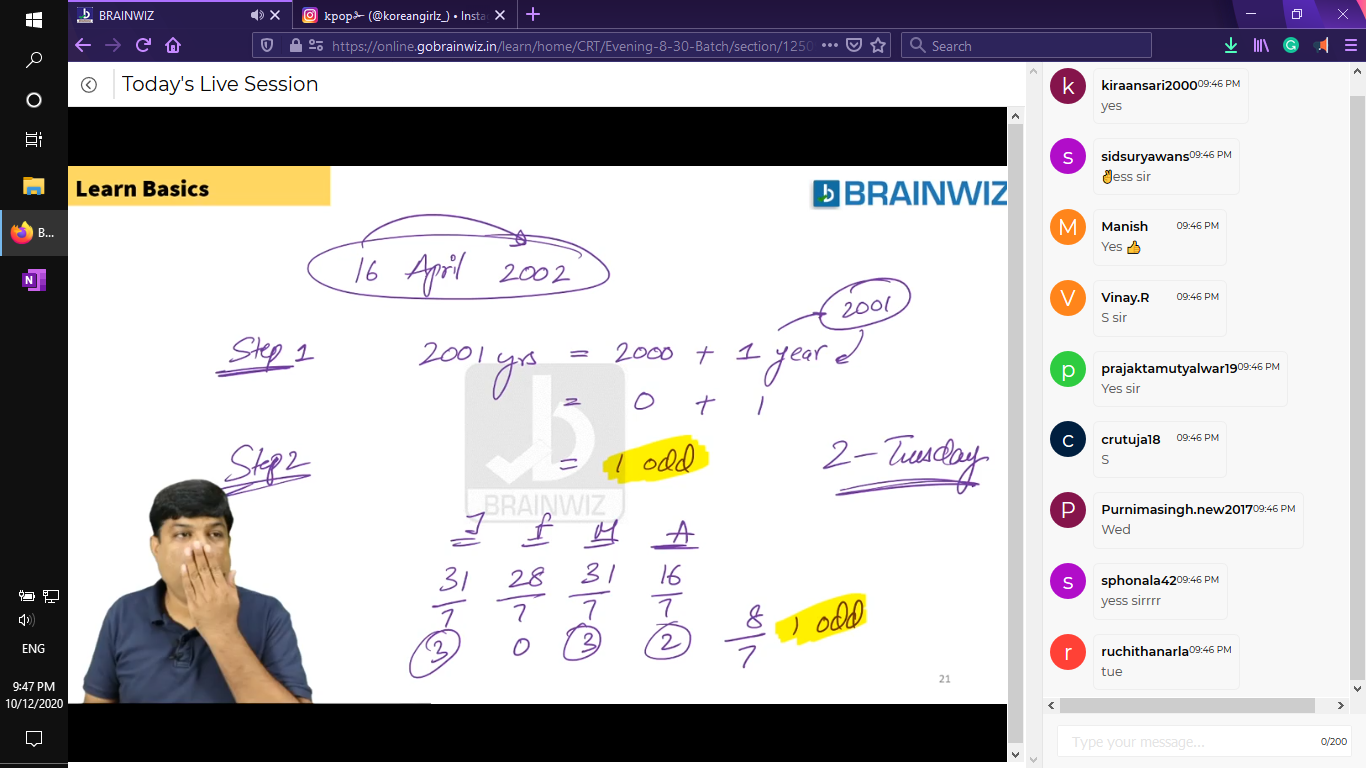 BRAINWIZ
kpop✁ (@koreangirlz_) • Insta
https://online.gobrainwiz.in/learn/home/CRT/Evening-8-30-Batch/section/1250
Search
Today's Live Session
Learn Basics
BRAINWIZ
16 April 2002
2001
Step 1 2001 yrs = 2000 + 1 year
= 0 + 1
Step 2 = 1 odd
2 – Tuesday
BRAINWIZ
J f M A
31/7 28/7 31/7 16/7
3 0 3 2 8/7 1 odd
21
k
kiraansari2000 09:46 PM
yes
s
sidsuryawans 09:46 PM
✌ess sir
M
Manish 09:46 PM
Yes 👍
V
Vinay.R 09:46 PM
S sir
p
prajaktamutyalwar19 09:46 PM
Yes sir
c
crutuja18 09:46 PM
S
P
Purnimasingh.new2017 09:46 PM
Wed
s
sphonala42 09:46 PM
yess sirrrr
r
ruchithanarla 09:46 PM
tue
Type your message... 0/200
B...
N
ENG
9:47 PM
10/12/2020